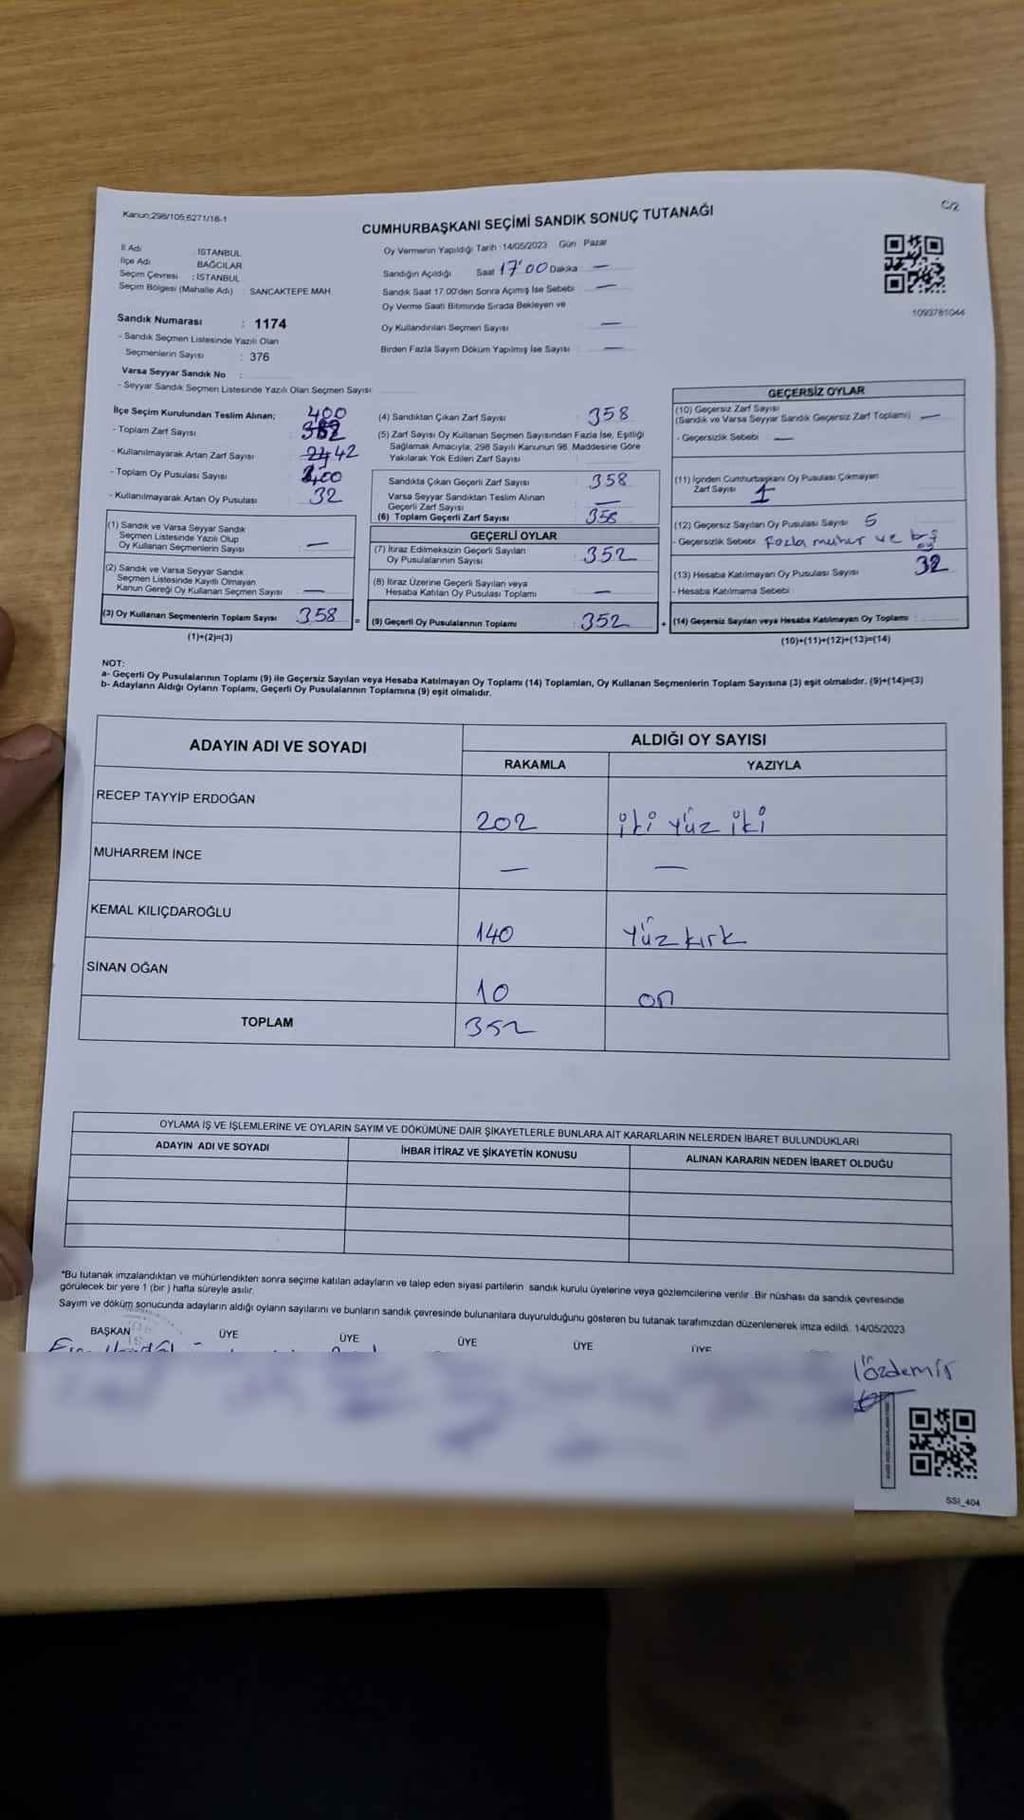 Kanun:298/105,6271/18-1
C/2
CUMHURBAŞKANI SEÇİMİ SANDIK SONUÇ TUTANAĞI
İl Adı İSTANBUL
İlçe Adı BAĞCILAR
Seçim Çevresi : İSTANBUL
Seçim Bölgesi (Mahalle Adı) : SANCAKTEPE MAH.
Sandık Numarası : 1174
- Sandık Seçmen Listesinde Yazılı Olan
Seçmenlerin Sayısı : 376
Varsa Seyyar Sandık No :
- Seyyar Sandık Seçmen Listesinde Yazılı Olan Seçmen Sayısı:
Oy Vermenin Yapıldığı Tarih :14/05/2023 Gün Pazar
Sandığın Açıldığı Saat 17:00 Dakika —
Sandık Saat 17.00'den Sonra Açımış İse Sebebi —
Oy Verme Saati Bitiminde Sırada Bekleyen ve
Oy Kullandırılan Seçmen Sayısı —
Birden Fazla Sayım Döküm Yapılmış İse Sayısı —
1093781044
İlçe Seçim Kurulundan Teslim Alınan; 400
- Toplam Zarf Sayısı
- Kullanılmayarak Artan Zarf Sayısı 42
- Toplam Oy Pusulası Sayısı 400
- Kullanılmayarak Artan Oy Pusulası 32
(1) Sandık ve Varsa Seyyar Sandık
Seçmen Listesinde Yazılı Olup
Oy Kullanan Seçmenlerin Sayısı —
(2) Sandık ve Varsa Seyyar Sandık
Seçmen Listesinde Kayıtlı Olmayan
Kanun Gereği Oy Kullanan Seçmen Sayısı —
(3) Oy Kullanan Seçmenlerin Toplam Sayısı 358 =
(1)+(2)=(3)
(4) Sandıktan Çıkan Zarf Sayısı 358
(5) Zarf Sayısı Oy Kullanan Seçmen Sayısından Fazla İse, Eşitliği
Sağlamak Amacıyla, 298 Sayılı Kanunun 98. Maddesine Göre
Yakılarak Yok Edilen Zarf Sayısı
Sandıkta Çıkan Geçerli Zarf Sayısı 358
Varsa Seyyar Sandıktan Teslim Alınan
Geçerli Zarf Sayısı —
(6) Toplam Geçerli Zarf Sayısı 358
GEÇERLİ OYLAR
(7) İtiraz Edilmeksizin Geçerli Sayılan
Oy Pusulalarının Sayısı 352
(8) İtiraz Üzerine Geçerli Sayılan veya
Hesaba Katılan Oy Pusulası Toplamı —
(9) Geçerli Oy Pusulalarının Toplamı : 352 +
GEÇERSİZ OYLAR
(10) Geçersiz Zarf Sayısı
(Sandık ve Varsa Seyyar Sandık Geçersiz Zarf Toplamı) —
- Geçersizlik Sebebi —
(11) İçinden Cumhurbaşkanı Oy Pusulası Çıkmayan
Zarf Sayısı 1
(12) Geçersiz Sayılan Oy Pusulası Sayısı 5
- Geçersizlik Sebebi Fazla mühür ve boş oy
(13) Hesaba Katılmayan Oy Pusulası Sayısı 32
- Hesaba Katılmama Sebebi
(14) Geçersiz Sayılan veya Hesaba Katılmayan Oy Toplamı
(10)+(11)+(12)+(13)=(14)
NOT:
a- Geçerli Oy Pusulalarının Toplamı (9) ile Geçersiz Sayılan veya Hesaba Katılmayan Oy Toplamı (14) Toplamları, Oy Kullanan Seçmenlerin Toplam Sayısına (3) eşit olmalıdır. (9)+(14)=(3)
b- Adayların Aldığı Oyların Toplamı, Geçerli Oy Pusulalarının Toplamına (9) eşit olmalıdır.
ADAYIN ADI VE SOYADI ALDIĞI OY SAYISI
RAKAMLA YAZIYLA
RECEP TAYYİP ERDOĞAN 202 iki yüz iki
MUHARREM İNCE — —
KEMAL KILIÇDAROĞLU 140 yüz kırk
SİNAN OĞAN 10 on
TOPLAM 352
OYLAMA İŞ VE İŞLEMLERİNE VE OYLARIN SAYIM VE DÖKÜMÜNE DAİR ŞİKAYETLERLE BUNLARA AİT KARARLARIN NELERDEN İBARET BULUNDUKLARI
ADAYIN ADI VE SOYADI İHBAR İTİRAZ VE ŞİKAYETİN KONUSU ALINAN KARARIN NEDEN İBARET OLDUĞU
*Bu tutanak imzalandıktan ve mühürlendikten sonra seçime katılan adayların ve talep eden siyasi partilerin sandık kurulu üyelerine veya gözlemcilerine verilir. Bir nüshası da sandık çevresinde
görülecek bir yere 1 (bir) hafta süreyle asılır.
Sayım ve döküm sonucunda adayların aldığı oyların sayılarını ve bunların sandık çevresinde bulunanlara duyurulduğunu gösteren bu tutanak tarafımızdan düzenlenerek imza edildi. 14/05/2023
BAŞKAN ÜYE ÜYE ÜYE ÜYE ÜYE
Özdemir
SSI_404